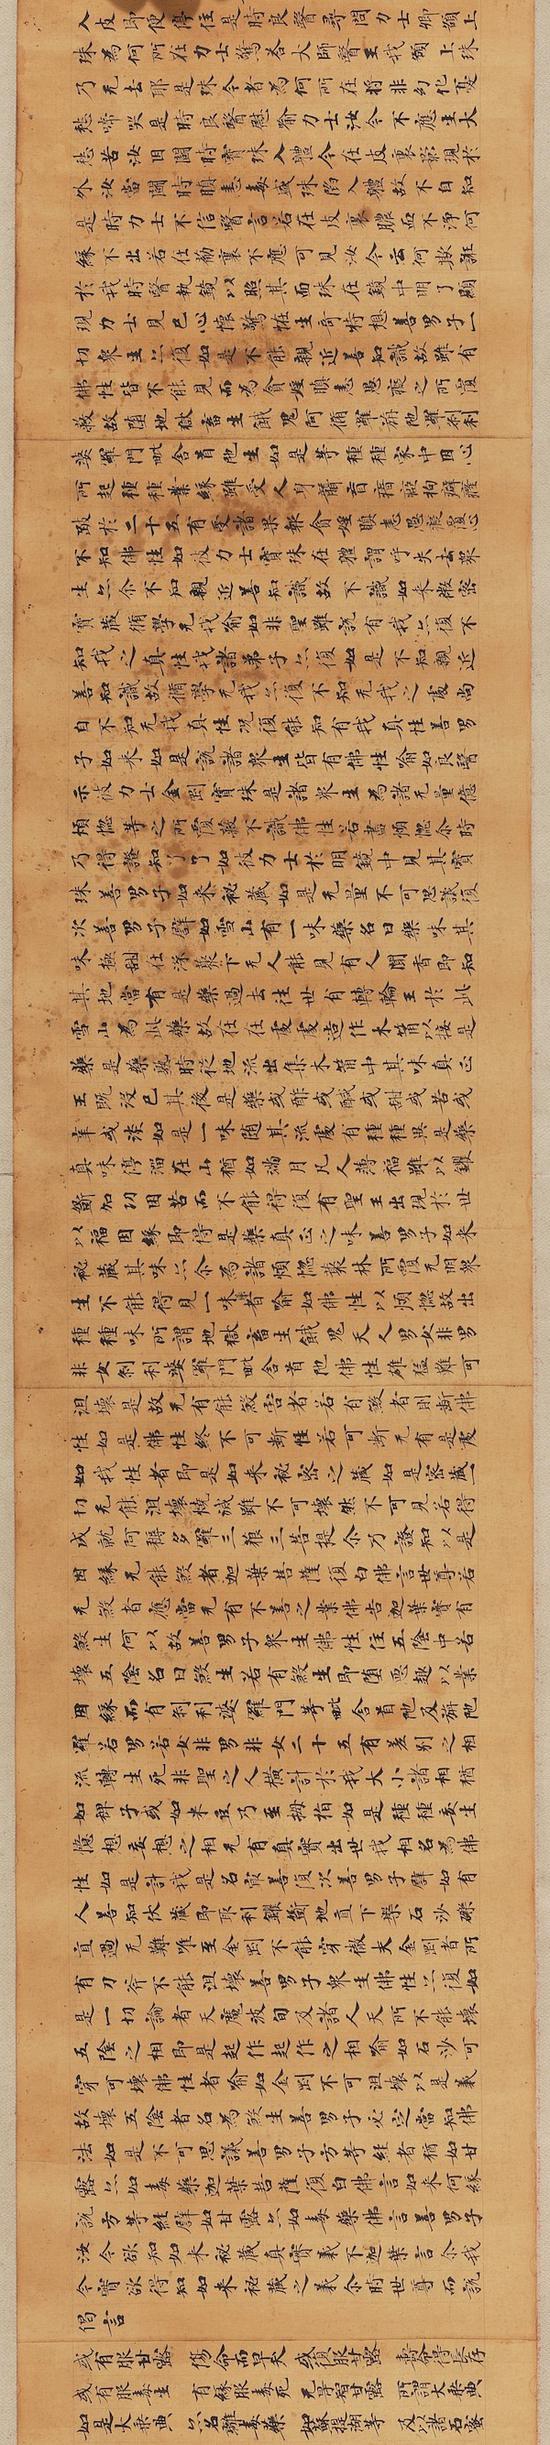 入皮即便停住是時良醫尋問力士卿額上
珠為何所在力士驚荅大師醫王我額上珠
乃无去耶是珠今者為何所在將非幻化憂
愁啼哭是時良醫慰喻力士汝今不應生大
愁苦汝因鬪時寶珠入體今在皮裏影現於
外汝當鬪時瞋恚毒盛珠陷入體故不自知
是時力士不信醫言若在皮裏膿血不淨何
緣不出若在筋裏不應可見汝今云何欺誑
於我時醫執鏡以照其面珠在鏡中明了顯
現力士見已心懷驚恠生奇特想善男子一
切眾生亦復如是不能親近善知識故雖有
佛性皆不能見而為貪婬瞋恚愚癡之所覆
蔽故墮地獄畜生餓鬼阿脩羅旃陀羅剎利
婆羅門毗舍首陀生如是等種種家中因心
所起種種業緣雖受人身聾盲瘖瘂拘躄癃
跛於二十五有受諸果報貪婬瞋恚愚癡覆心
不知佛性如彼力士寶珠在體謂呼失去眾
生亦尒不知親近善知識故不識如來微密
寶藏脩學无我喻如非聖雖說有我亦復不
知我之真性我諸弟子亦復如是不知親近
善知識故脩學无我亦復不知无我之處尚
自不知无我真性況復能知有我真性善男
子如來如是說諸眾生皆有佛性喻如良醫
示彼力士金剛寶珠是諸眾生為諸无量億
煩惱等之所覆蔽不識佛性若盡煩惱尒時
乃得證知了了如彼力士於明鏡中見其寶
珠善男子如來秘藏如是无量不可思議復
次善男子譬如雪山有一味藥名曰藥味其
味極甜在深藂下无人能見有人聞香即知
其地當有是藥過去往世有轉輪王於此
雪山為此藥故在在處處造作木筩以接是
藥是藥熟時從地流出集木筩中其味真正
王既没已其後是藥或酢或醎或甜或苦或
辛或淡如是一味隨其流處有種種異是藥
真味停溜在山猶如滿月凡人薄福雖以钁
斵加功困苦而不能得復有聖王出現於世
以福因緣即得是藥真正之味善男子如來
秘藏其味亦尒為諸煩惱藂林所覆无明眾
生不能得見一味者喻如佛性以煩惱故出
種種味所謂地獄畜生餓鬼天人男女非男
非女剎利婆羅門毗舍首陀佛性雄猛難可
沮壞是故无有能煞害者若有煞者則斷佛
性如是佛性終不可斷性若可斷无有是處
如我性者即是如來秘密之藏如是密藏一
切无能沮壞燒滅雖不可壞然不可見若得
成就阿耨多羅三藐三菩提尒乃證知以是
因緣无能煞者迦葉菩薩復白佛言世尊若
无煞者應當无有不善之業佛告迦葉實有
煞生何以故善男子眾生佛性住五陰中若
壞五陰名曰煞生若有煞生即墮惡趣以業
因緣而有剎利婆羅門等毗舍首陀及旃陀
羅若男若女非男非女二十五有差別之相
流轉生死非聖之人橫計於我大小諸相猶
如稗子或如米豆乃至拇指如是種種妄生
憶想妄想之相无有真實出世我相名為佛
性如是計我是名㝡善復次善男子譬如有
人善知伏藏即取利钁斵地直下槃石沙礫
直過无難唯至金剛不能穿徹夫金剛者所
有刀斧不能沮壞善男子眾生佛性亦復如
是一切論者天魔波旬及諸人天所不能壞
五陰之相即是起作起作之相喻如石沙可
穿可壞佛性者喻如金剛不可沮壞以是義
故壞五陰者名為煞生善男子必定當知佛
法如是不可思議善男子方等經者猶如甘
露亦如毒藥迦葉菩薩復白佛言如來何緣
說方等經譬如甘露亦如毒藥佛言善男子
汝今欲知如來秘藏真實義不迦葉言尒我
今實欲得知如來秘藏之義尒時世尊而說
偈言
或有服甘露　傷命而早夭　或復服甘露　壽命得長存
或有服毒生　有緣服毒死　无㝵智甘露　所謂大乘典
如是大乘典　亦名雜毒藥　如蘇提湖等　及以諸石蜜